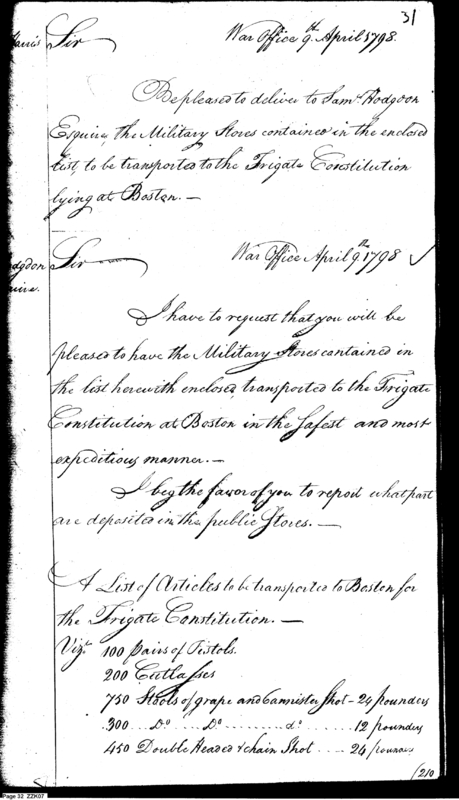 31
Harris Sir War Office 9th April 1798.
Be pleased to deliver to Saml. Hodgdon
Esquire, the Military Stores contained in the enclosed
List, to be transported to the Frigate Constitution
lying at Boston. —
Sir War Office April 9th 1798
I have to request that you will be
pleased to have the Military Stores contained in
the list herewith enclosed, transported to the Frigate
Constitution at Boston in the safest and most
expeditious manner. —
I beg the favor of you to report what part
are deposited in the public Stores. —
A List of Articles to be transported to Boston for
the Frigate Constitution. —
Vizt. 100 Pairs of Pistols.
200 Cutlasses
750 Stools of grape and cannister Shot - 24 pounders
300 .. Do .. Do ........ do ........ 12 pounders
450 Double Headed & chain Shot .... 24 pounders
(210
Page 32 ZZK07